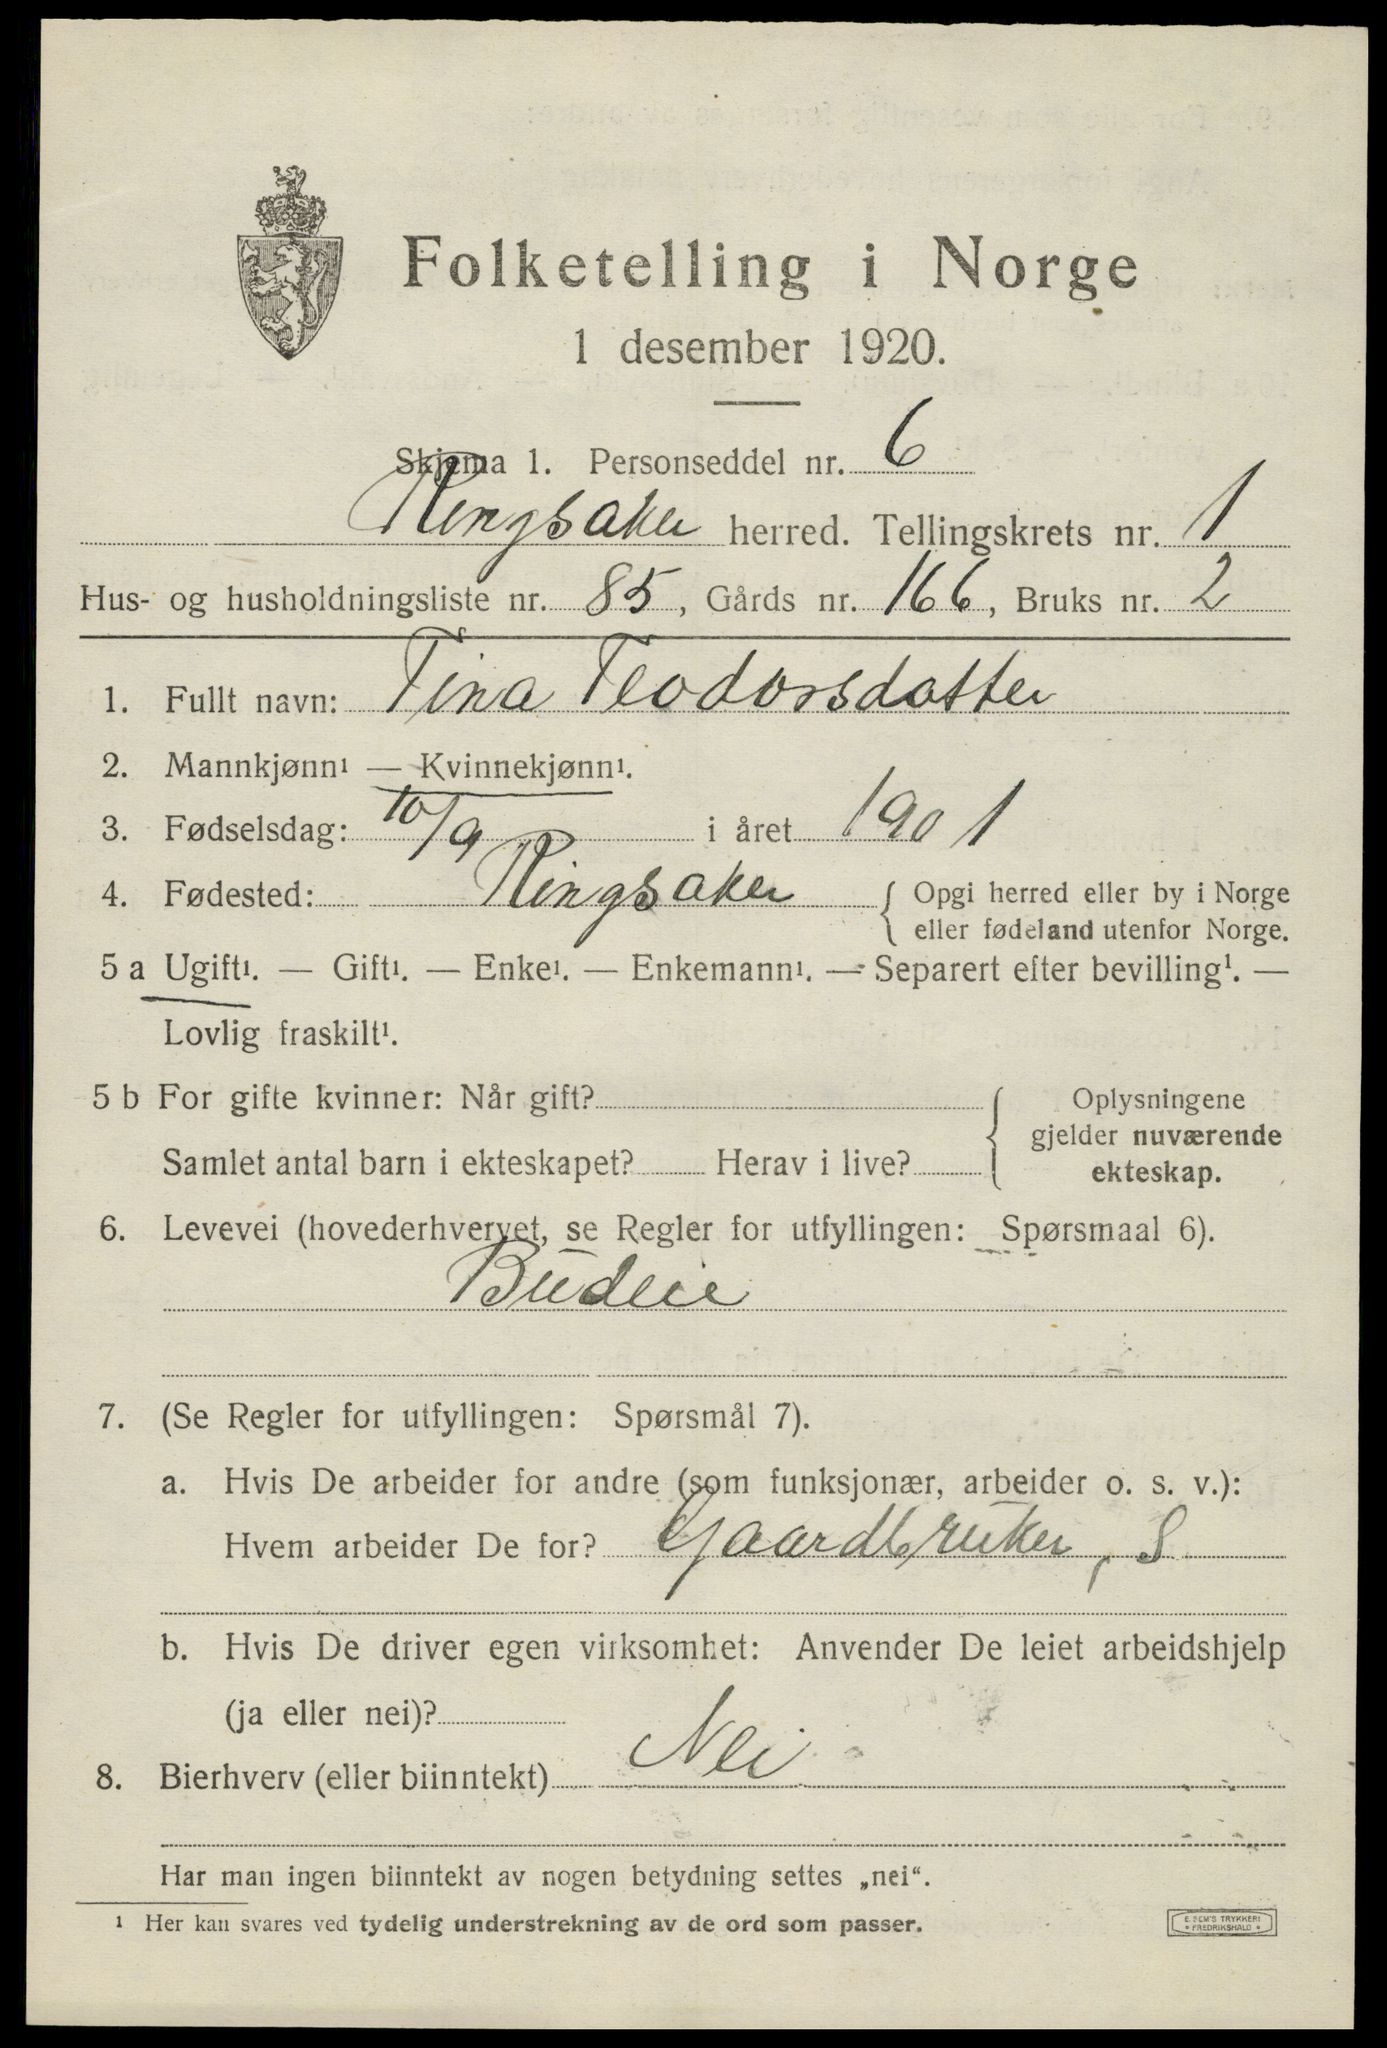 Folketelling i Norge
1 desember 1920.
Skjema 1. Personseddel nr. 6
Ringsaker herred. Tellingskrets nr. 1
Hus- og husholdningsliste nr. 85, Gårds nr. 166, Bruks nr. 2
1. Fullt navn: Tina Teodorsdatter
2. Mannkjønn¹ — Kvinnekjønn¹.
3. Fødselsdag: 10/9 i året 1901
4. Fødested: Ringsaker { Opgi herred eller by i Norge
eller fødeland utenfor Norge.
5 a Ugift¹. — Gift¹. — Enke¹. — Enkemann¹. — Separert efter bevilling¹. —
Lovlig fraskilt¹.
5 b For gifte kvinner: Når gift? { Oplysningene
gjelder nuværende
Samlet antal barn i ekteskapet? Herav i live?
ekteskap.
6. Levevei (hovederhvervet, se Regler for utfyllingen: Spørsmaal 6).
Budeie
7. (Se Regler for utfyllingen: Spørsmål 7).
a. Hvis De arbeider for andre (som funksjonær, arbeider o. s. v.):
Hvem arbeider De for? Gaardbruker, S
b. Hvis De driver egen virksomhet: Anvender De leiet arbeidshjelp
(ja eller nei)?
8. Bierhverv (eller biinntekt) Nei
Har man ingen biinntekt av nogen betydning settes „nei“.
¹ Her kan svares ved tydelig understrekning av de ord som passer.
E. SEM'S TRYKKERI
• FREDRIKSHALD •